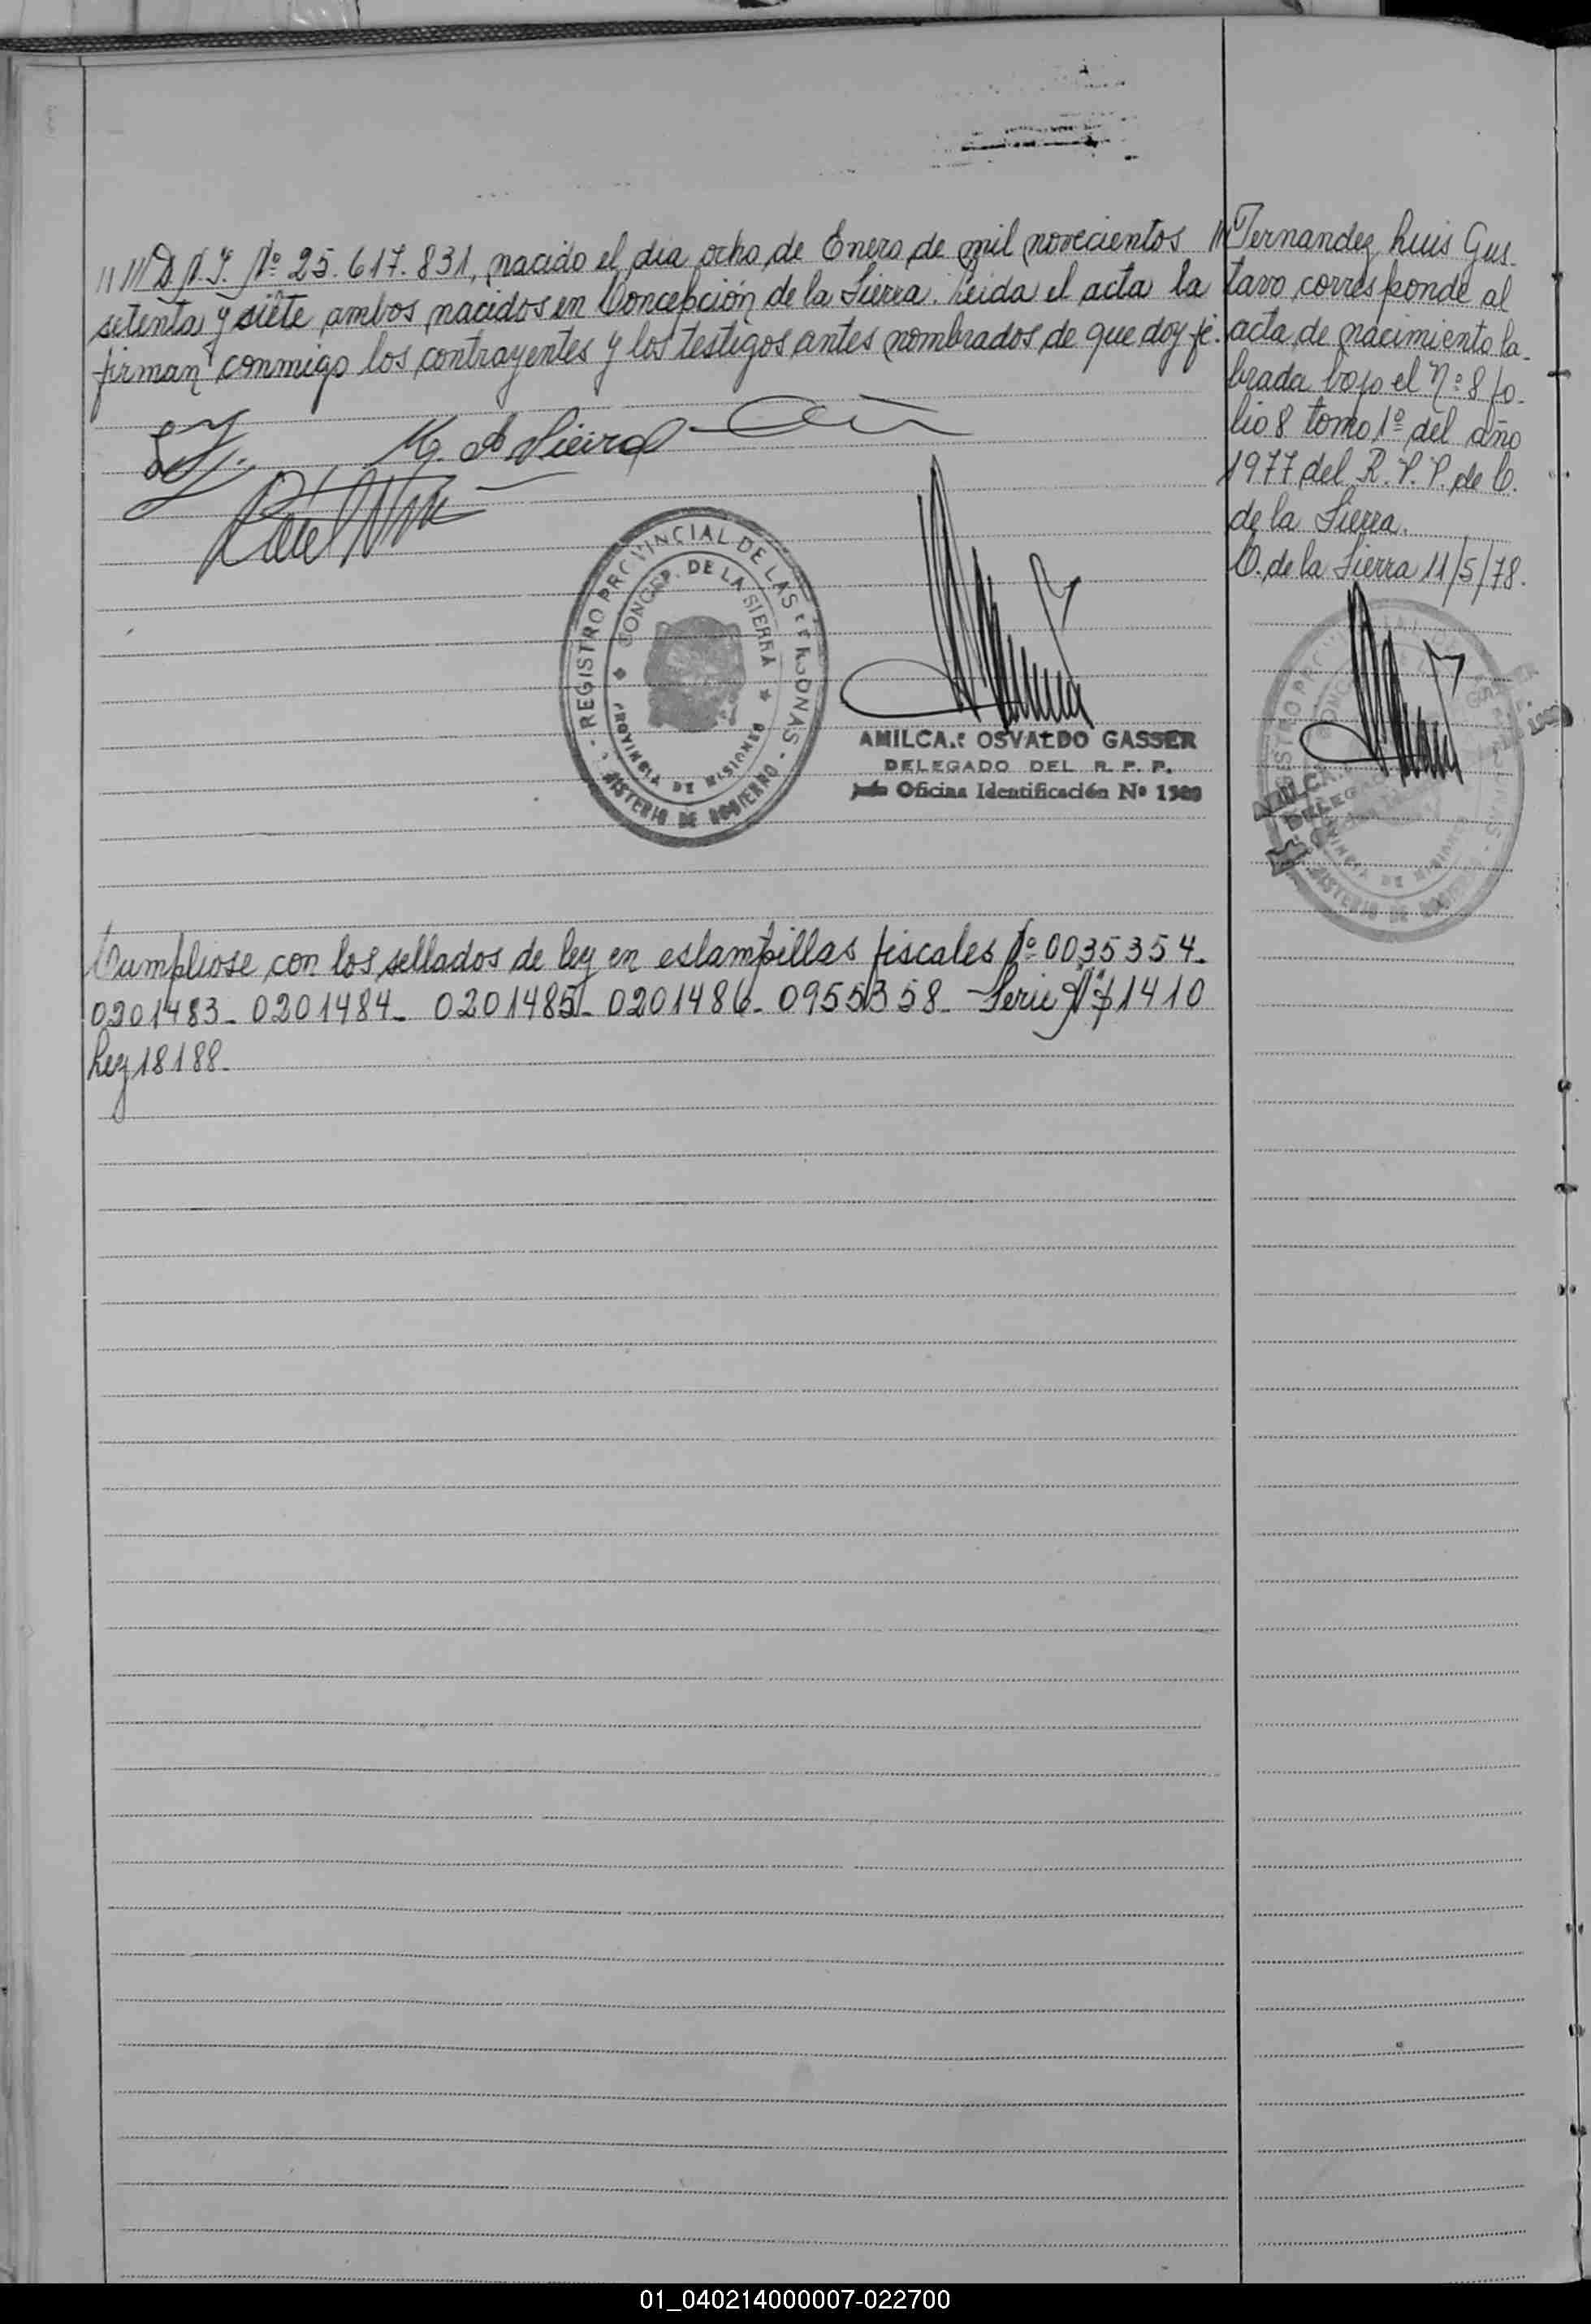 //// D.N.I. Nº 25.617.831, nacido el dia ocho de Enero de mil novecientos
setenta y siete ambos nacidos en Concepción de la Sierra. Leida el acta la
firman conmigo los contrayentes y los testigos antes nombrados de que doy fé.
REGISTRO PROVINCIAL DE LAS PERSONAS
CONCEP. DE LA SIERRA
PROVINCIA DE MISIONES
MINISTERIO DE GOBIERNO
AMILCAR OSVALDO GASSER
DELEGADO DEL R. P. P.
Jefe Oficina Identificación Nº 1989
Cumpliose con los sellados de ley en estampillas fiscales Nº 0035354-
0201483- 0201484- 0201485- 0201486- 0955358- Serie "A" $1410
Ley 18188-
//Fernandez Luis Gus-
tavo corresponde al
acta de nacimiento la-
brada bajo el Nº 8 fo-
lio 8 tomo 1º del año
1977 del R.P.P. de C.
de la Sierra.
C. de la Sierra 11/5/78.
01_040214000007-022700